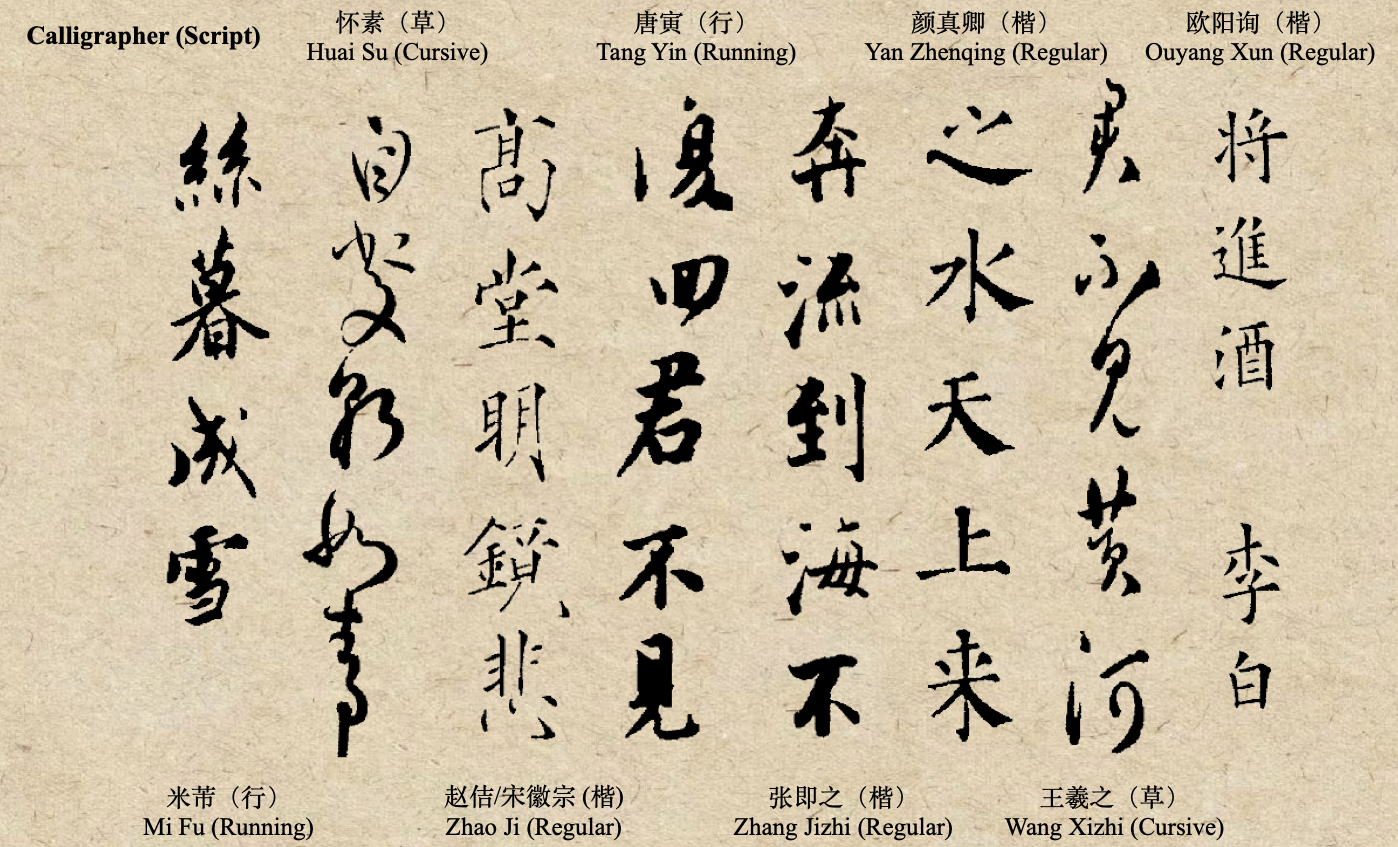 Calligrapher (Script)
怀素（草）
Huai Su (Cursive)
唐寅（行）
Tang Yin (Running)
颜真卿（楷）
Yan Zhenqing (Regular)
欧阳询（楷）
Ouyang Xun (Regular)
将進酒 李白
君不見黄河
之水天上来
奔流到海不
復回君不見
髙堂明鏡悲
白髮朝如青
絲暮成雪
米芾（行）
Mi Fu (Running)
赵佶/宋徽宗 (楷)
Zhao Ji (Regular)
张即之（楷）
Zhang Jizhi (Regular)
王羲之（草）
Wang Xizhi (Cursive)